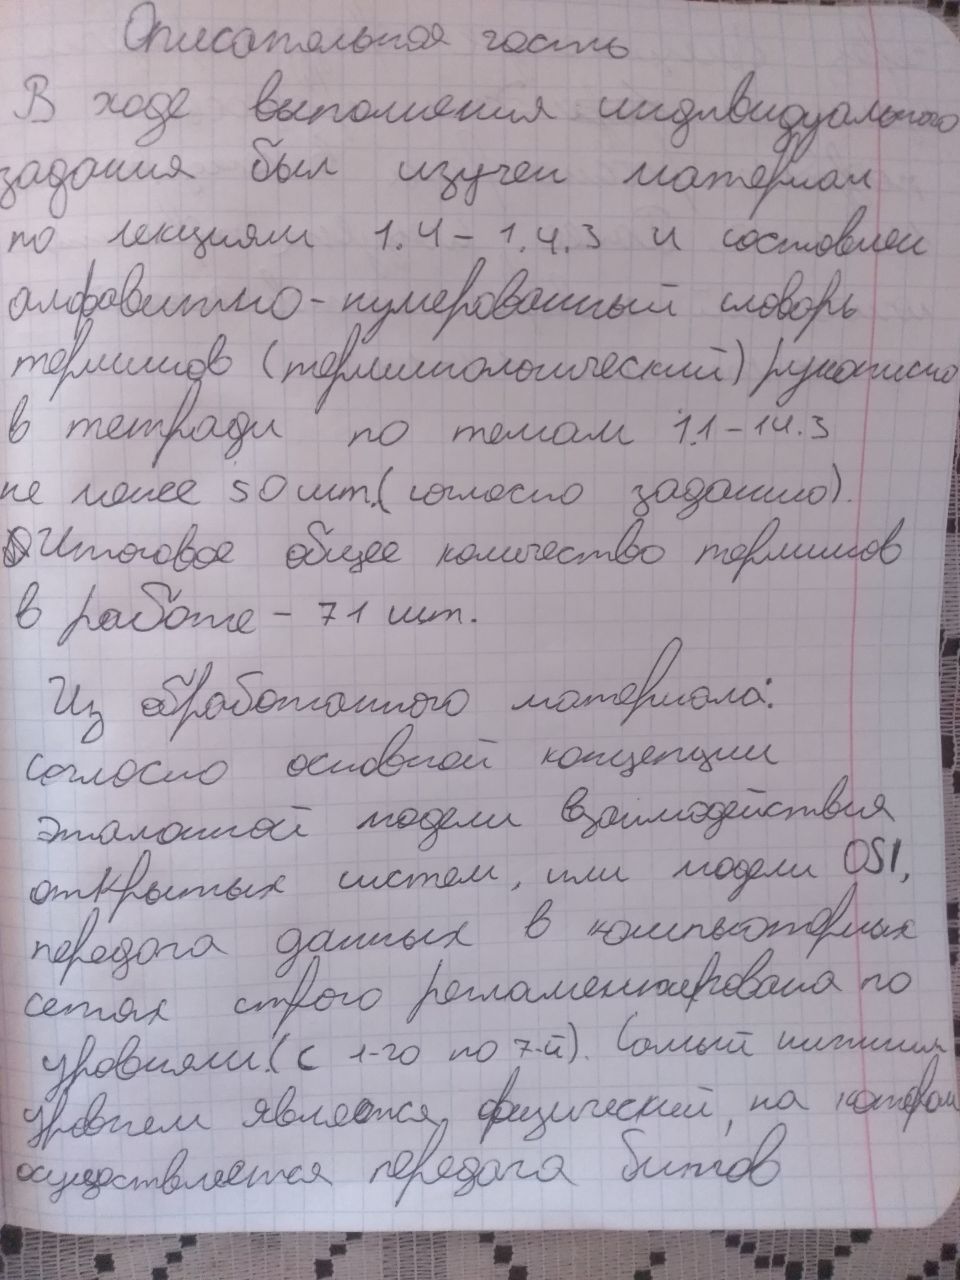 Описательная часть
В ходе выполнения индивидуального
задания был изучен материал
по лекциям 1.4 - 1.4.3 и составлен
алфавитно-нумерованный словарь
терминов (терминологический) рукописно
в тетради по темам 1.1 - 1.4.3
не менее 50 шт. (согласно заданию).
Итоговое общее количество терминов
в работе - 71 шт.
Из обработанного материала:
согласно основной концепции
эталонной модели взаимодействия
открытых систем, или модели OSI,
передача данных в компьютерных
сетях строго регламентирована по
уровням. (с 1-го по 7-й). Самый нижним
уровнем является физический, на котором
осуществляется передача битов